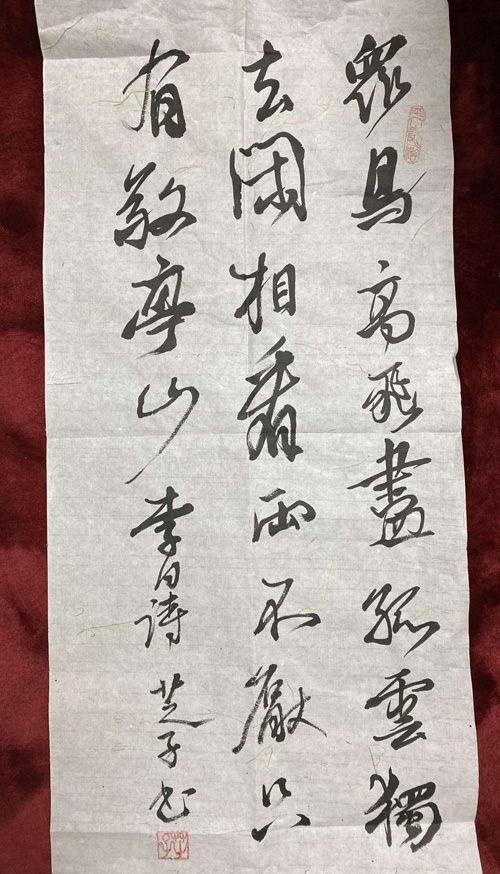 眾鳥高飛盡孤雲獨
去閑相看兩不厭只
有敬亭山李白詩芝子書